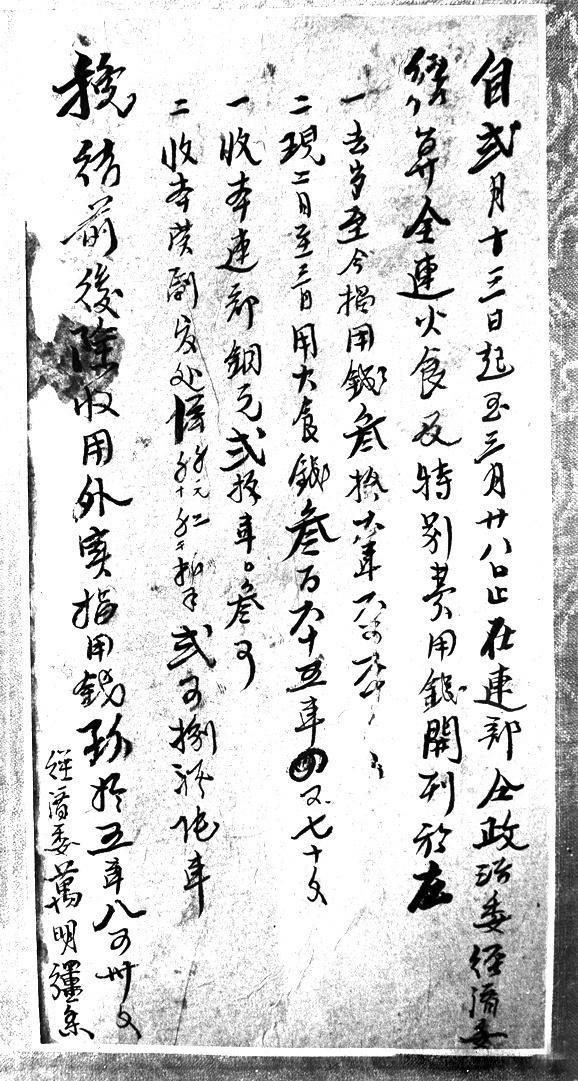 自弍月十三日起至三月廿八日止在連部仝政治委經濟委
結算全連火食及特別費用錢開列於左
一去岁至今揭用錢叁拾六串六百
二現二月至三月用火食錢叁百六十五串四百七十文
一收本連部銅元弍拾串〇叁百
二收本漢劉 处 弍百捌 串
總結前後除收用外實揭用錢玖拾五串八百卅文
經濟委萬明疆条